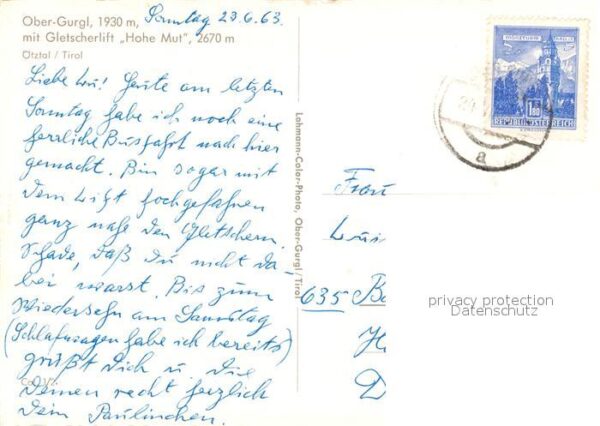 Ober-Gurgl, 1930 m, Sonntag 23.6.63.
mit Gletscherlift „Hohe Mut", 2670 m
Ötztal / Tirol
Liebe Lu! Heute am letzten
Sonntag habe ich noch eine
herrliche Busfahrt nach hier
gemacht. Bin sogar mit
dem Lift hochgefahren
ganz nahe den Gletschern.
Schade, daß Du nicht da-
bei warst. Bis zum
Wiedersehn am Samstag
(Schlafwagen habe ich bereits)
grüßt Dich u. die
Deinen recht herzlich
Dein Paulinchen.
Lohmann-Color-Photo, Ober-Gurgl/Tirol
1.80
REPUBLIK ÖSTERREICH
a
Frau
Lui
635 Ba
H
D
privacy protection
Datenschutz